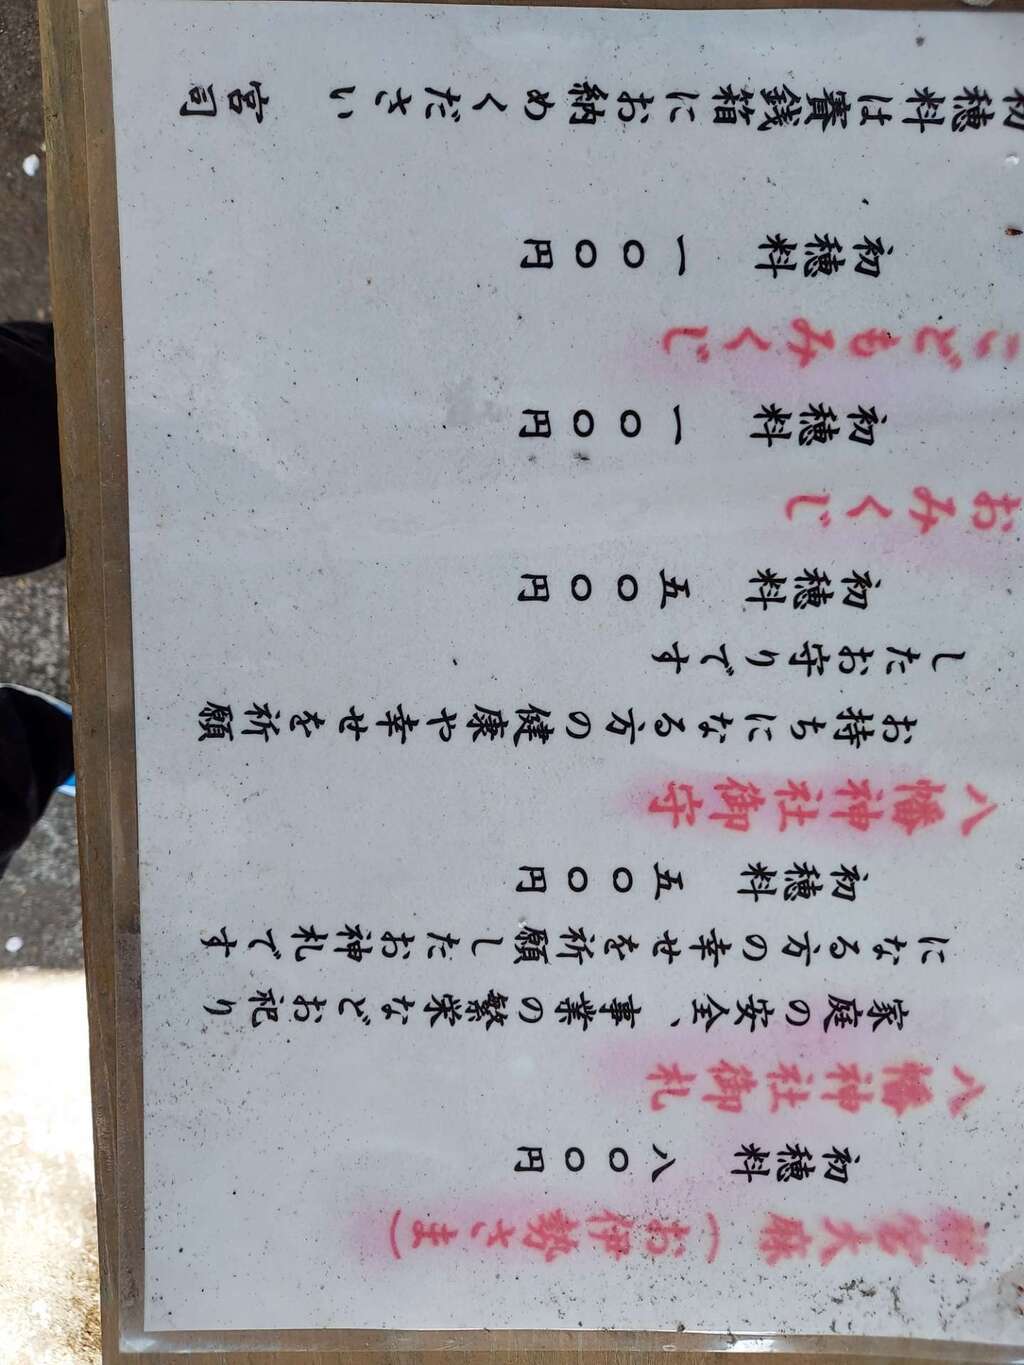 神宮大麻（お伊勢さま）
初穂料　八〇〇円
八幡神社御札
家庭の安全、事業の繁栄などお祀り
になる方の幸せを祈願したお神札です
初穂料　五〇〇円
八幡神社御守
お持ちになる方の健康や幸せを祈願
したお守りです
初穂料　五〇〇円
おみくじ
初穂料　一〇〇円
こどもみくじ
初穂料　一〇〇円
初穂料は賽銭箱にお納めください　宮司